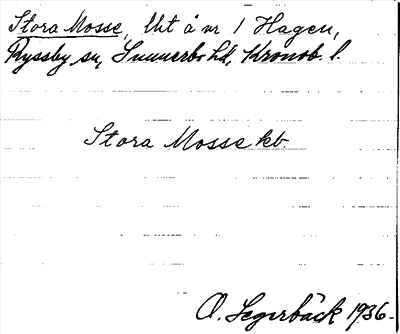 Stora Mosse, Uht å nr 1 Hagen,
Ryssby sn, Sunnerbo hd, Kronob. l.
Stora Mosse kb.
O. Segerbäck 1936.